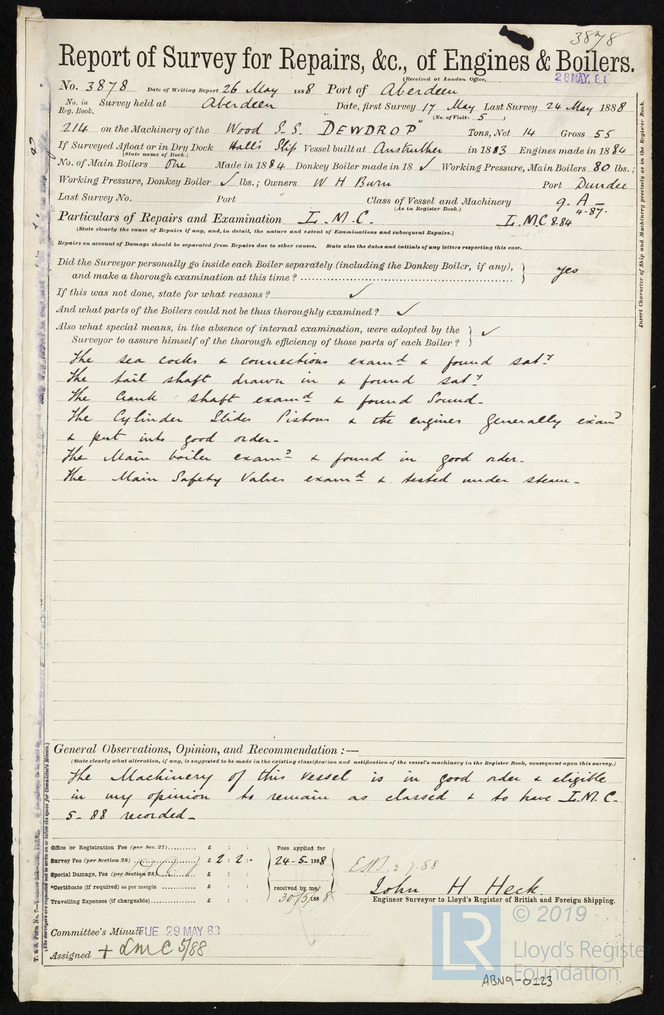 3878
Report of Survey for Repairs, &c., of Engines & Boilers.
(Received at London Office,
28 MAY. 88
No. 3878 Date of Writing Report 26 May 1888 Port of Aberdeen
No. in Reg. Book. Survey held at Aberdeen Date, first Survey 17 May Last Survey 24 May 1888
(No. of Visits 5 )
214 on the Machinery of the Wood S.S. "DEWDROP" Tons, Net 14 Gross 55
If Surveyed Afloat or in Dry Dock Hall's Slip Vessel built at Anstruther in 1883 Engines made in 1884
(State name of Dock.)
No. of Main Boilers One Made in 1884 Donkey Boiler made in 18 ✓ Working Pressure, Main Boilers 80 lbs.;
Working Pressure, Donkey Boiler ✓ lbs.; Owners W H Burn Port Dundee
Last Survey No. Port Class of Vessel and Machinery 9. A -
(As in Register Book.) 4-87.
Particulars of Repairs and Examination L.M.C. L.M.C 8.84
(State clearly the cause of Repairs if any, and, in detail, the nature and extent of Examinations and subsequent Repairs.)
Repairs on account of Damage should be separated from Repairs due to other causes. State also the dates and initials of any letters respecting this case.
Did the Surveyor personally go inside each Boiler separately (including the Donkey Boiler, if any), and make a thorough examination at this time? yes
If this was not done, state for what reasons? ✓
And what parts of the Boilers could not be thus thoroughly examined? ✓
Also what special means, in the absence of internal examination, were adopted by the Surveyor to assure himself of the thorough efficiency of those parts of each Boiler? ✓
The sea cocks & connections examd & found saty
The tail shaft drawn in & found saty
The Crank shaft examd & found Sound-
The Cylinder Slides Pistons & the engines generally examd
& put into good order-
The Main boiler examd & found in good order-
The Main Safety Valves examd & tested under steam-
Insert Character of Ship and Machinery precisely as in the Register Book.
General Observations, Opinion, and Recommendation :—
(State clearly what alteration, if any, is suggested to be made in the existing classification and notification of the vessel's machinery in the Register Book, consequent upon this survey.)
The Machinery of this vessel is in good order & eligible
in my opinion to remain as classed & to have L.M.C.
5-88 recorded-
Office or Registration Fee (per Sec. 27) £ : : Fees applied for
Survey Fee (per Section 28) £ 2 : 2 : - 24-5-1888
Special Damage, Fee (per Section 28) £ : :
*Certificate (if required) as per margin £ : : received by me,
Travelling Expenses (if chargeable) £ : : 30/5/1888
John H Heck
Engineer Surveyor to Lloyd's Register of British and Foreign Shipping.
Committee's Minute TUE 29 MAY 88
Assigned + LMC 5/88
© 2019
LR
Lloyd's Register
Foundation
ABN9-0123